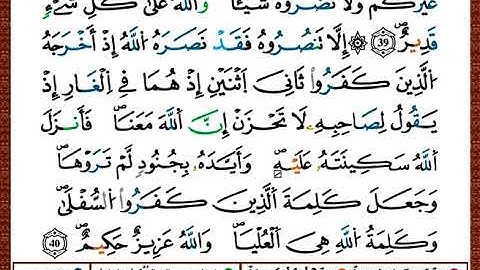 غَيْرَكُمْ وَلَا تَضُرُّوهُ شَيْـًٔا ۗ وَٱللَّهُ عَلَىٰ كُلِّ شَىْءٍ
قَدِيرٌ ۝39 ۞ إِلَّا تَنصُرُوهُ فَقَدْ نَصَرَهُ ٱللَّهُ إِذْ أَخْرَجَهُ
ٱلَّذِينَ كَفَرُوا۟ ثَانِىَ ٱثْنَيْنِ إِذْ هُمَا فِى ٱلْغَارِ إِذْ
يَقُولُ لِصَٰحِبِهِۦ لَا تَحْزَنْ إِنَّ ٱللَّهَ مَعَنَا ۖ فَأَنزَلَ
ٱللَّهُ سَكِينَتَهُۥ عَلَيْهِ وَأَيَّدَهُۥ بِجُنُودٍ لَّمْ تَرَوْهَا
وَجَعَلَ كَلِمَةَ ٱلَّذِينَ كَفَرُوا۟ ٱلسُّفْلَىٰ ۗ
وَكَلِمَةُ ٱللَّهِ هِىَ ٱلْعُلْيَا ۗ وَٱللَّهُ عَزِيزٌ حَكِيمٌ ۝40